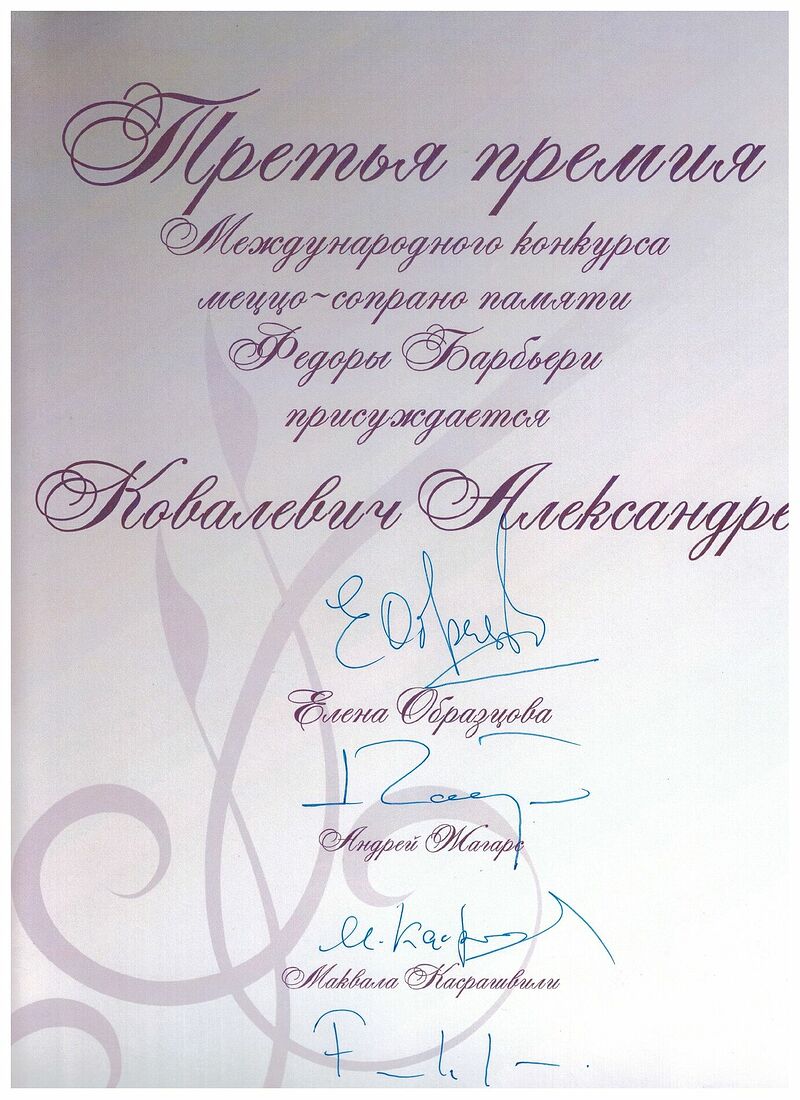 Третья премия
Международного конкурса
меццо~сопрано памяти
Федоры Барбьери
присуждается
Ковалевич Александре
Елена Образцова
Андрей Жагарс
М. Касра
Маквала Касрашвили